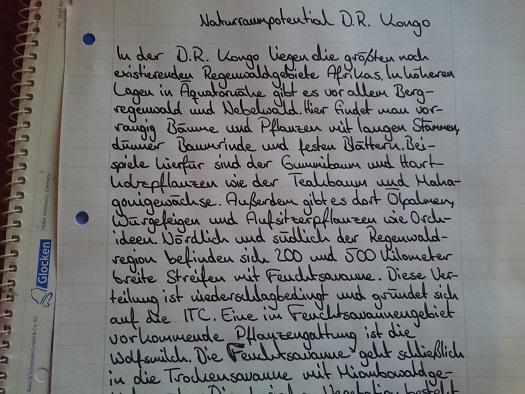 Naturraumpotential D.R. Kongo
In der D.R. Kongo liegen die größten noch
existierenden Regenwaldgebiete Afrikas. In höheren
Lagen in Äquatornähe gibt es vor allem Berg-
regenwald und Nebelwald. Hier findet man vor-
rangig Bäume und Pflanzen mit langen Stämmen,
dünner Baumrinde und festen Blättern. Bei-
spiele hierfür sind der Gummibaum und Hart-
holzpflanzen wie der Teakbaum und Maha-
gonigewächse. Außerdem gibt es dort Ölpalmen,
Würgefeigen und Aufsitzerpflanzen wie Orch-
ideen. Nördlich und südlich der Regenwald-
region befinden sich 200 und 500 Kilometer
breite Streifen mit Feuchtsavanne. Diese Ver-
teilung ist niederschlagbedingt und gründet sich
auf die ITC. Eine im Feuchtsavannengebiet
vorkommende Pflanzengattung ist die
Wolfsmilch. Die Feuchtsavanne geht schließlich
in die Trockensavanne mit Miombowaldge-
Glocken